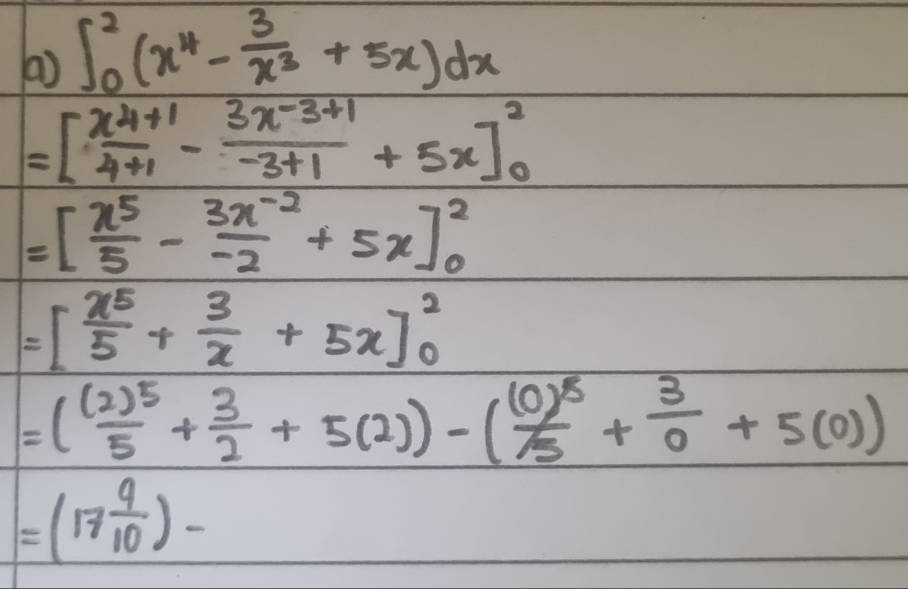 a) ∫₀² (x⁴ - 3/x³ + 5x) dx
= [x⁴⁺¹/4+1 - 3x⁻³⁺¹/-3+1 + 5x]₀²
= [x⁵/5 - 3x⁻²/-2 + 5x]₀²
= [x⁵/5 + 3/x + 5x]₀²
= ((2)⁵/5 + 3/2 + 5(2)) - ((0)⁵/5 + 3/0 + 5(0))
= (17 9/10) -